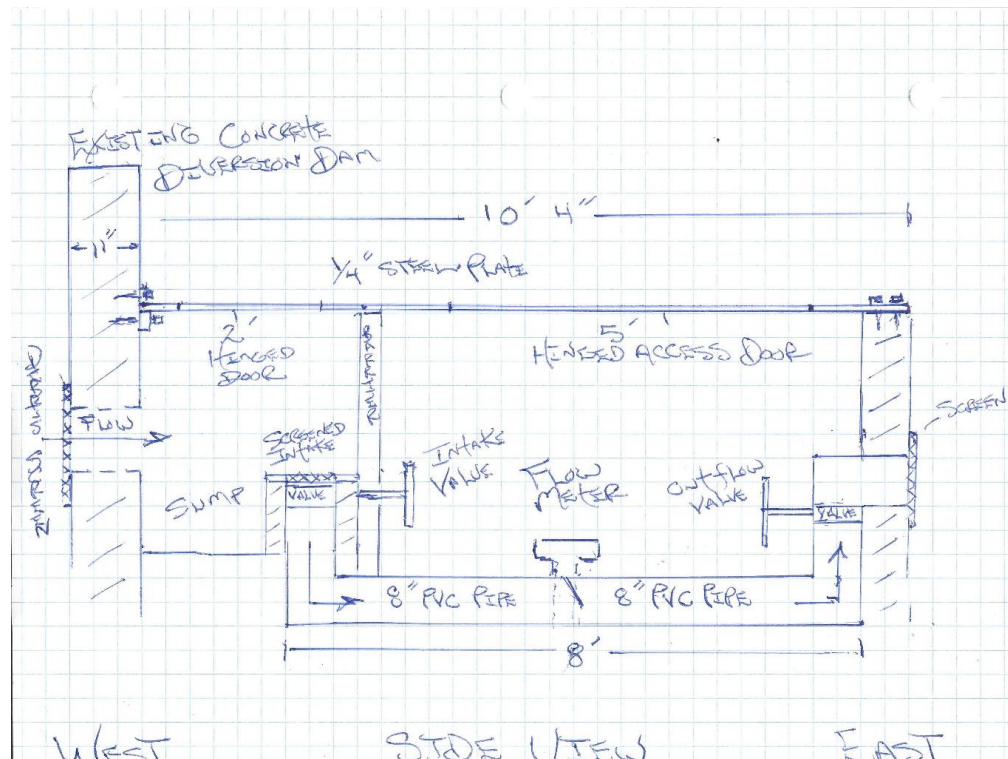 EXISTING CONCRETE
DIVERSION DAM
10' 4"
11"
1/4" STEEL PLATE
2'
HINGED
DOOR
5'
HINGED ACCESS DOOR
FLOW
SCREENED
INTAKE
VALVE
SUMP
INTAKE
VALVE
FLOW
METER
OUTFLOW
VALVE
VALVE
SCREEN
8" PVC PIPE
8" PVC PIPE
8'
WEST
SIDE VIEW
EAST